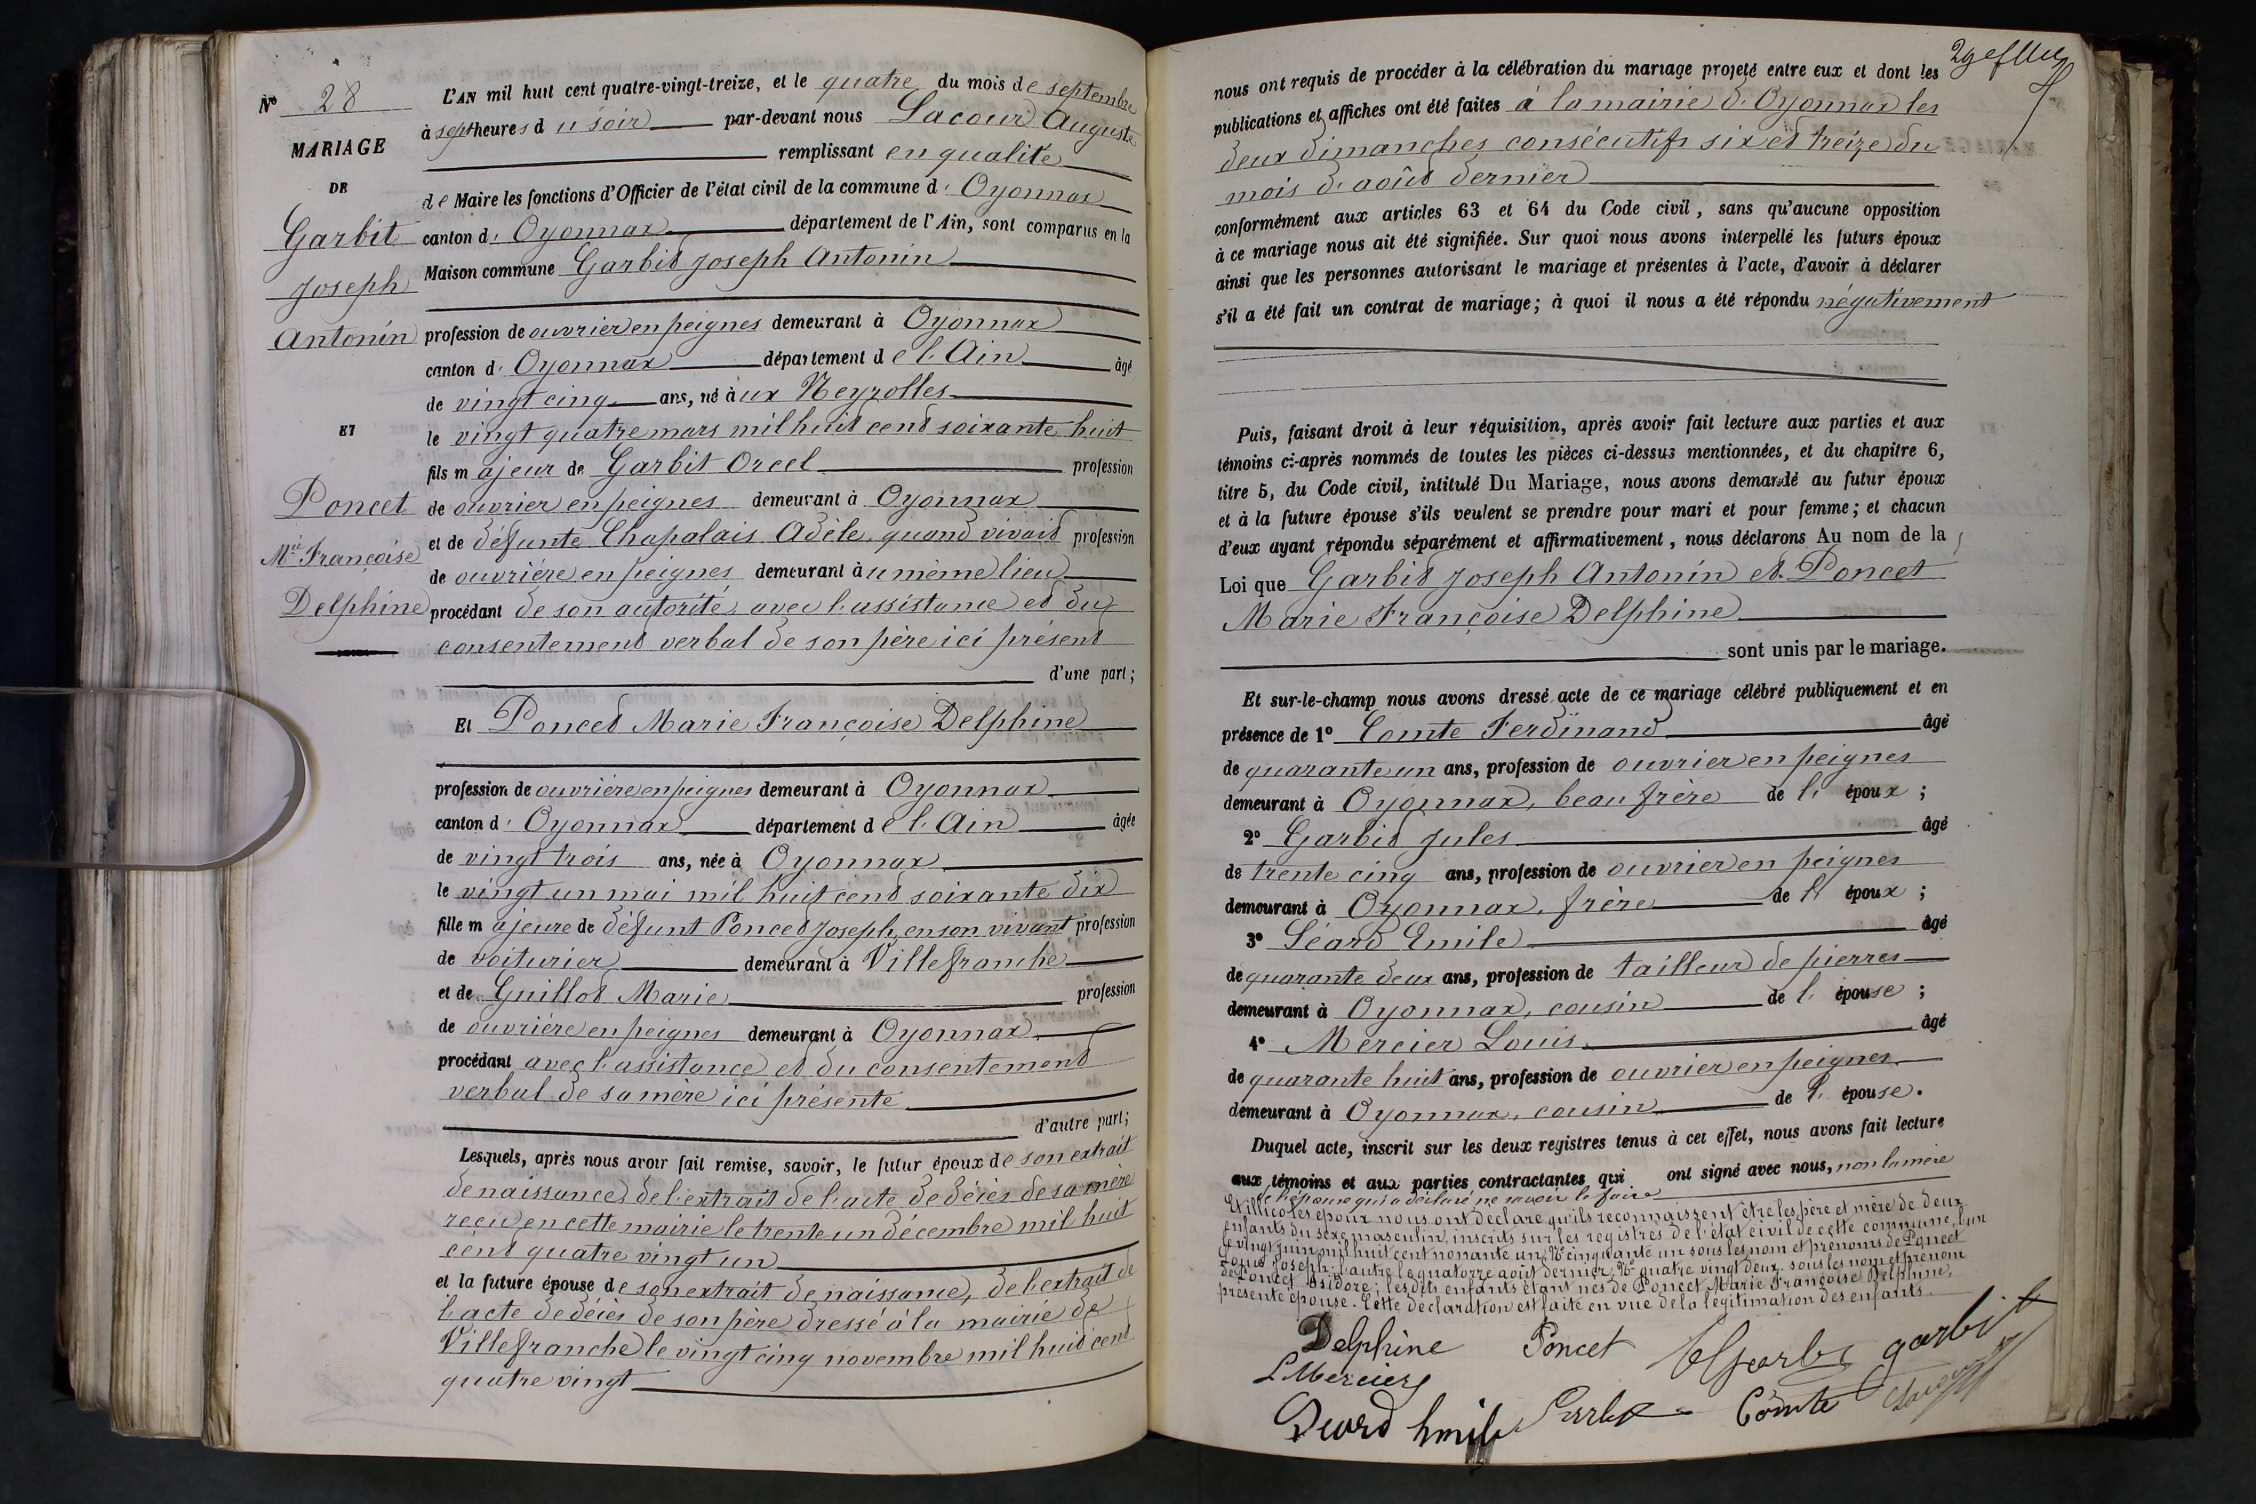 Nº 28
MARIAGE
DE
Garbit
Joseph
Antonin
ET
Poncet
Mie Françoise
Delphine
L'AN mil huit cent quatre-vingt-treize, et le quatre du mois de septembre
à sept heures du soir par-devant nous Lacour Auguste
remplissant en qualité
de Maire les fonctions d'Officier de l'état civil de la commune d' Oyonnax
canton d' Oyonnax département de l'Ain, sont comparus en la
Maison commune Garbit Joseph Antonin
profession de ouvrier en peignes demeurant à Oyonnax
canton d' Oyonnax département de l'Ain âgé
de vingt cinq ans, né aux Neyrolles
le vingt quatre mars mil huit cent soixante huit
fils majeur de Garbit Orcel profession
de ouvrier en peignes demeurant à Oyonnax
et de défunte Chapalais Adèle, quand vivait profession
de ouvrière en peignes demeurant au même lieu
procédant de son autorité avec l'assistance et du
consentement verbal de son père ici présent
d'une part;
Et Poncet Marie Françoise Delphine
profession de ouvrière en peignes demeurant à Oyonnax
canton d' Oyonnax département de l'Ain âgée
de vingt trois ans, née à Oyonnax
le vingt un mai mil huit cent soixante dix
fille majeure de défunt Poncet Joseph, en son vivant profession
de voiturier demeurant à Villefranche
et de Guillot Marie profession
de ouvrière en peignes demeurant à Oyonnax
procédant avec l'assistance et du consentement
verbal de sa mère ici présente
d'autre part;
Lesquels, après nous avoir fait remise, savoir, le futur époux de son extrait
de naissance, de l'extrait de l'acte de décès de sa mère
reçu en cette mairie le trente un décembre mil huit
cent quatre vingt un
et la future épouse de son extrait de naissance, de l'extrait de
l'acte de décès de son père dressé à la mairie de
Villefranche le vingt cinq novembre mil huit cent
quatre vingt
nous ont requis de procéder à la célébration du mariage projeté entre eux et dont les
publications et affiches ont été faites à la mairie d'Oyonnax les
deux dimanches consécutifs six et treize du
mois d'août dernier
conformément aux articles 63 et 64 du Code civil, sans qu'aucune opposition
à ce mariage nous ait été signifiée. Sur quoi nous avons interpellé les futurs époux
ainsi que les personnes autorisant le mariage et présentes à l'acte, d'avoir à déclarer
s'il a été fait un contrat de mariage; à quoi il nous a été répondu négativement
Puis, faisant droit à leur réquisition, après avoir fait lecture aux parties et aux
témoins ci-après nommés de toutes les pièces ci-dessus mentionnées, et du chapitre 6,
titre 5, du Code civil, intitulé Du Mariage, nous avons demandé au futur époux
et à la future épouse s'ils veulent se prendre pour mari et pour femme; et chacun
d'eux ayant répondu séparément et affirmativement, nous déclarons Au nom de la
Loi que Garbit Joseph Antonin et Poncet
Marie Françoise Delphine
sont unis par le mariage.
Et sur-le-champ nous avons dressé acte de ce mariage célébré publiquement et en
présence de 1º Comte Ferdinand âgé
de quarante un ans, profession de ouvrier en peignes
demeurant à Oyonnax, beau frère de l' époux;
2º Garbit Jules âgé
de trente cinq ans, profession de ouvrier en peignes
demeurant à Oyonnax, frère de l' époux;
3º Séard Emile âgé
de quarante deux ans, profession de tailleur de pierres
demeurant à Oyonnax, cousin de l' épouse;
4º Mercier Louis âgé
de quarante huit ans, profession de ouvrier en peignes
demeurant à Oyonnax, cousin de l' épouse.
Duquel acte, inscrit sur les deux registres tenus à cet effet, nous avons fait lecture
aux témoins et aux parties contractantes qui ont signé avec nous, non la mère
de l'épouse qui a déclaré ne savoir le faire
Et illico les époux nous ont déclaré qu'ils reconnaissent être les père et mère de deux
enfants du sexe masculin, inscrits sur les registres de l'état civil de cette commune, l'un
le vingt juin mil huit cent nonante un, Nº cinquante un sous les nom et prénoms de Poncet
Louis Joseph; l'autre le quatorze août dernier, Nº quatre vingt deux, sous les nom et prénom
de Poncet Isidore; les dits enfants étant nés de Poncet Marie Françoise Delphine,
présente épouse. Cette déclaration est faite en vue de la légitimation des enfants.
Delphine Poncet garbit
L Mercier
Comte